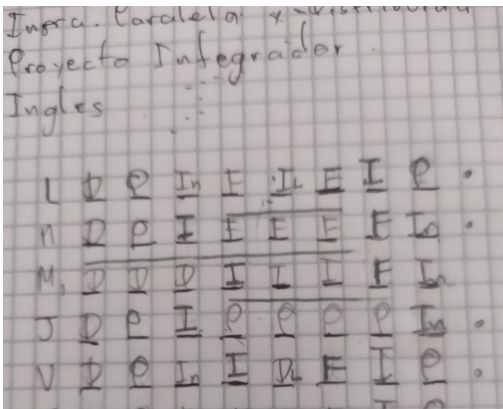 Infra. Paralela y
Proyecto Integrador.
Ingles
L D P In E IL E I P .
M D P I E E E E In .
M, D D D I I I E In
J D P I P P P P In .
V D P In I DL E I P .